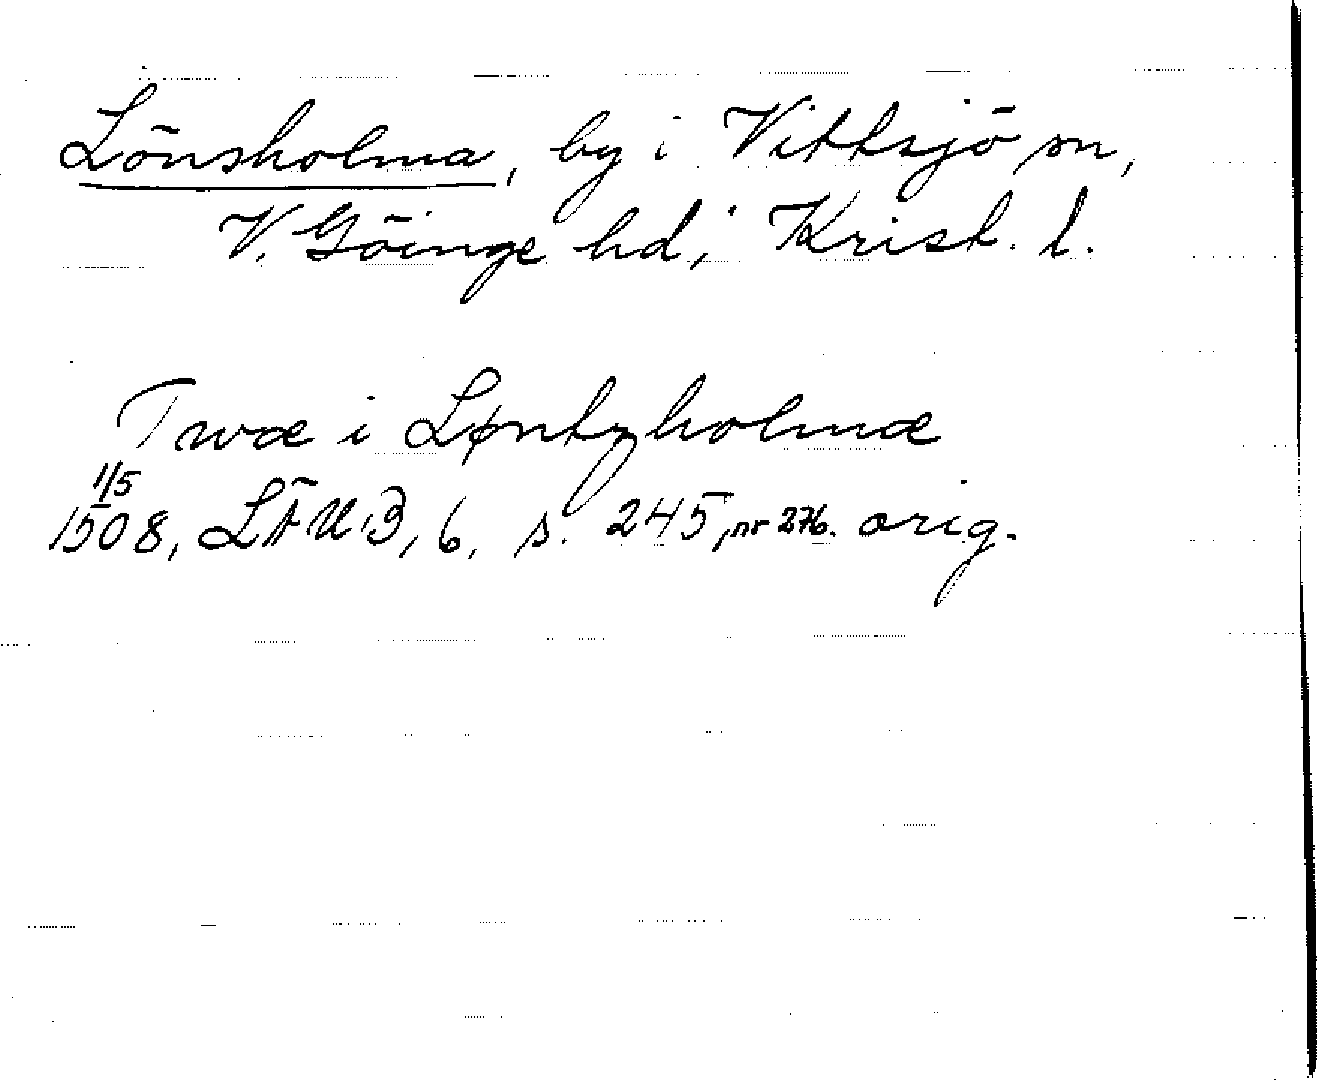 Lönsholma, by i Vittsjö sn,
V. Göinge hd, Krist. l.
Twæ i Løntzholmæ
1/5
1508, LÄUB, 6, s. 245, nr 276. orig.